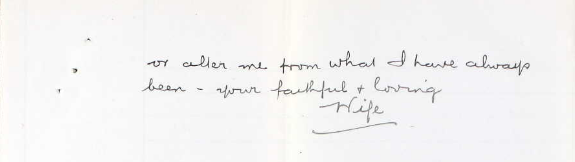 or alter me from what I have always
been - your faithful + loving
Wife